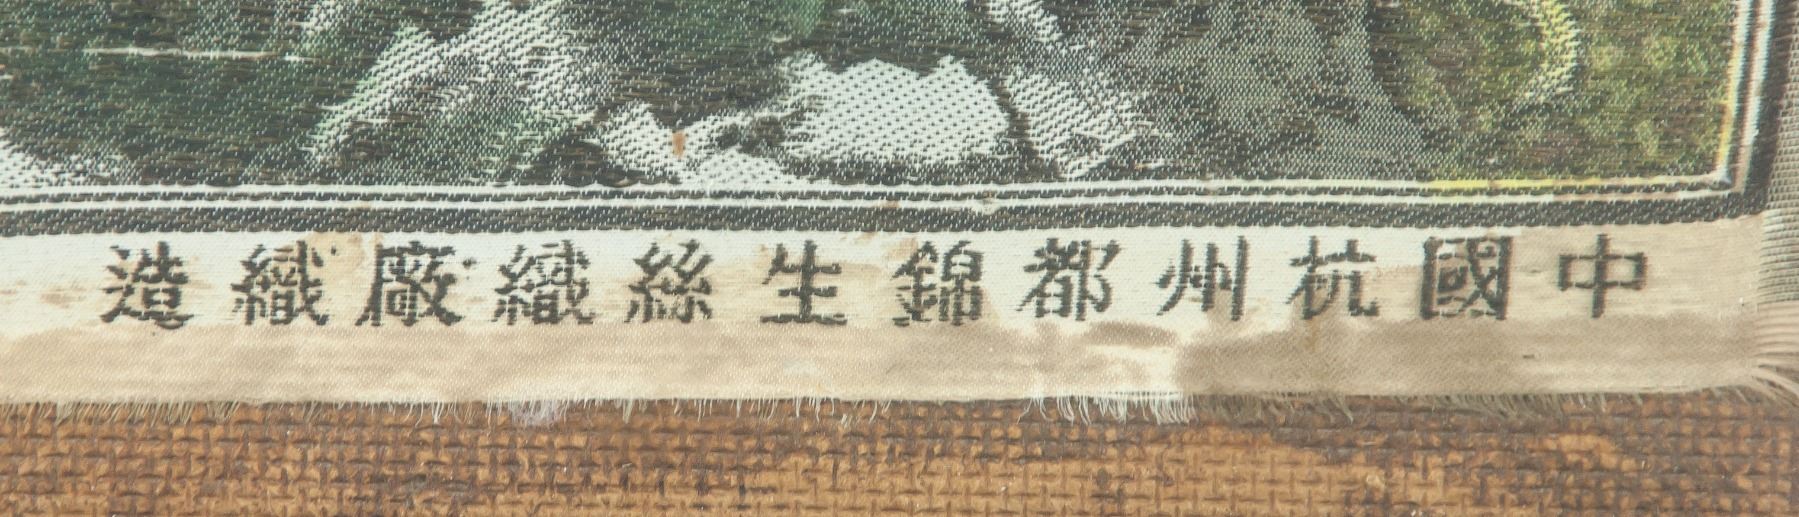 中國杭州都錦生絲織廠織造